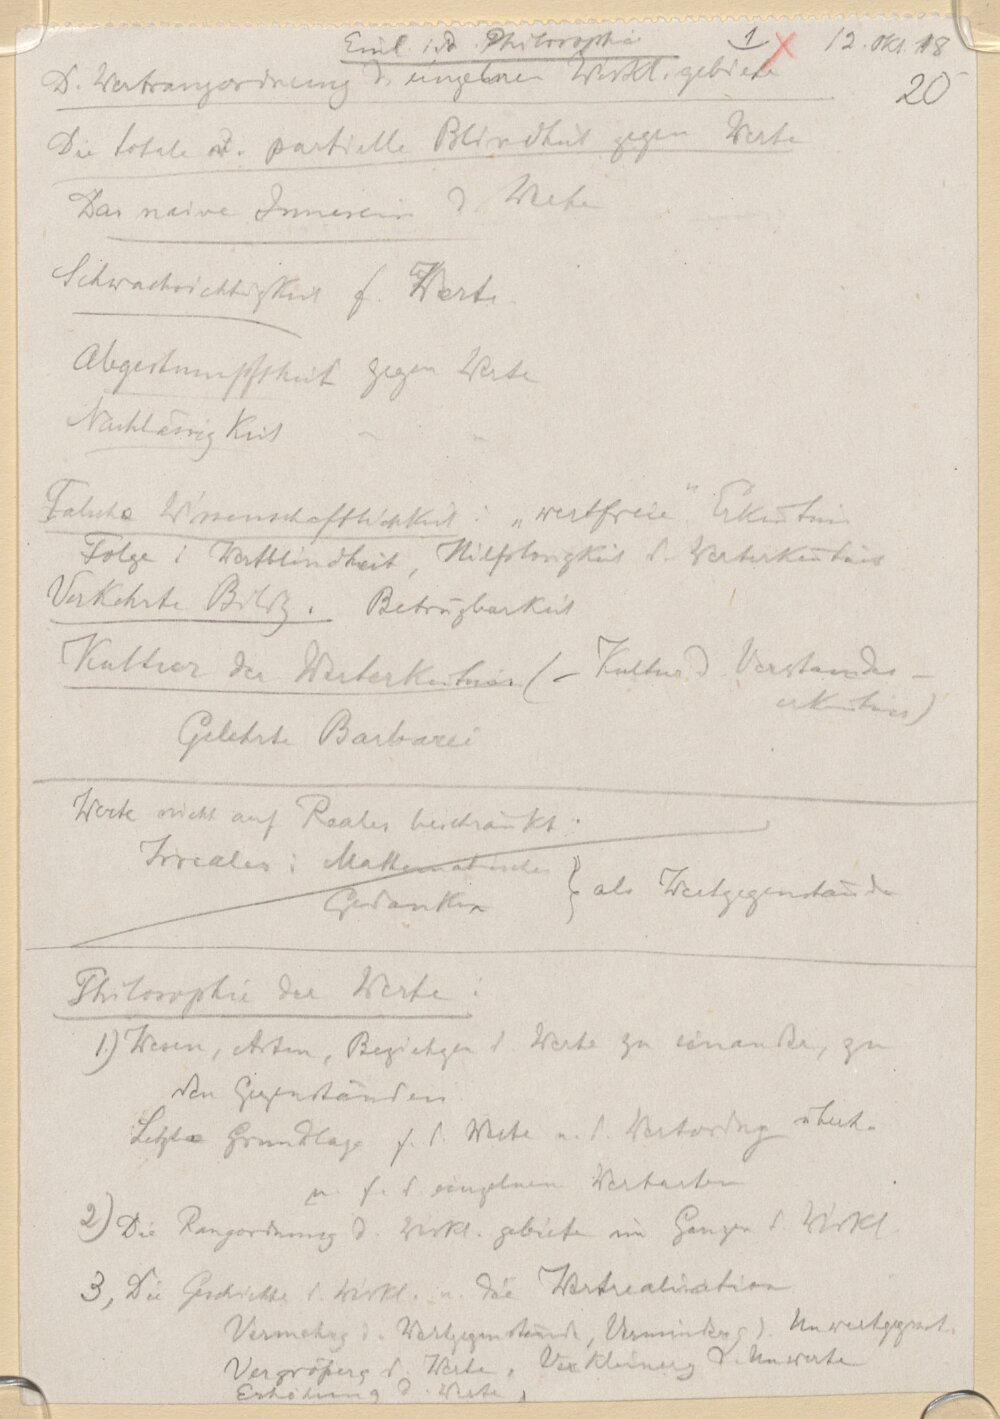 Einl. i. d. Philosophie 1 12. Okt. 18
20
D. Wertrangordnung d. einzelnen Wirkl.gebiete
Die totale u. partielle Blindheit gegen Werte
Das naive Innesein d Werte
Schwachsichtigkeit f. Werte.
Abgestumpftheit gegen Werte
Nachlässigkeit " "
Falsche Wissenschaftlichkeit: „wertfreie" Erkentnis
Folge: Wertblindheit, Hilflosigkeit d. Werterkentnis
Verkehrte Bildg. Betrügbarkeit
Kultur der Werterkentnis (– Kultur d Verstandes-
erkentnis)
Gelehrte Barbarei
Werte nicht auf Reales beschränkt:
Irreales: Mathematisches
Gedanken } als Wertgegenstände
Philosophie der Werte:
1.) Wesen, Arten, Beziehgen d. Werte zu einander, zu
den Gegenständen
Letzte Grundlage f. d. Werte u. d. Wertordng überh.
u. f. d. einzelnen Wertarten
2) Die Rangordnung d. Wirkl.gebiete im Ganzen d. Wirkl
3, Die Geschichte d. Wirkl. u. die Wertrealisation
Vermehrg d. Wertgegenstände, Verminderg d. Unwertgegenst.
Vergrößerg d. Werte, Verkleinerg d. Unwerte
Erhöhung d. Werte,